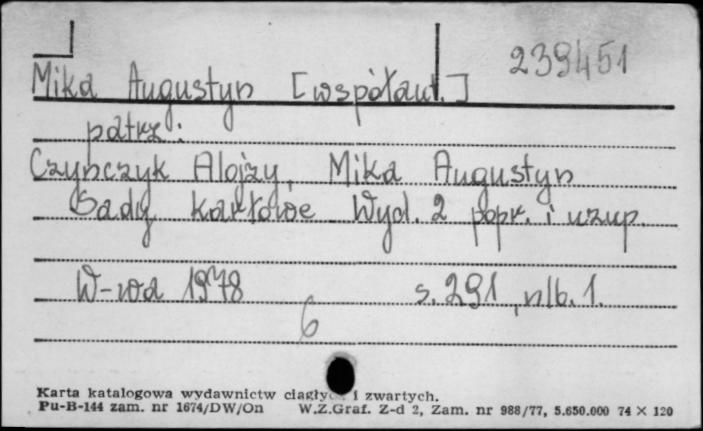 239451
Mika Augustyn [współaut.]
patrz:
Czynczyk Alojzy, Mika Augustyn
Sady karłowe Wyd. 2 popr. i uzup.
W-wa 1978 s. 291, nlb. 1.
6
Karta katalogowa wydawnictw ciągłych i zwartych.
Pu-B-144 zam. nr 1674/DW/On W.Z.Graf. Z-d 2, Zam. nr 988/77, 5.650.000 74 × 120